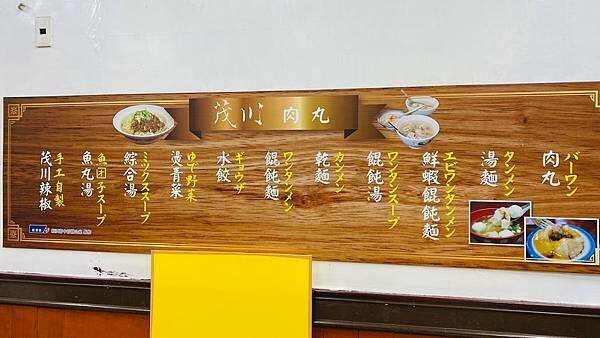 茂川 肉丸
バーワン
肉丸
タンメン
湯麵
エビワンタンメン
鮮蝦餛飩麵
ワンタンスープ
餛飩湯
カンメン
乾麵
ワンタンメン
餛飩麵
ギョウザ
水餃
ゆで野菜
燙青菜
ミックススープ
綜合湯
魚団子スープ
魚丸湯
手工自製
茂川辣椒